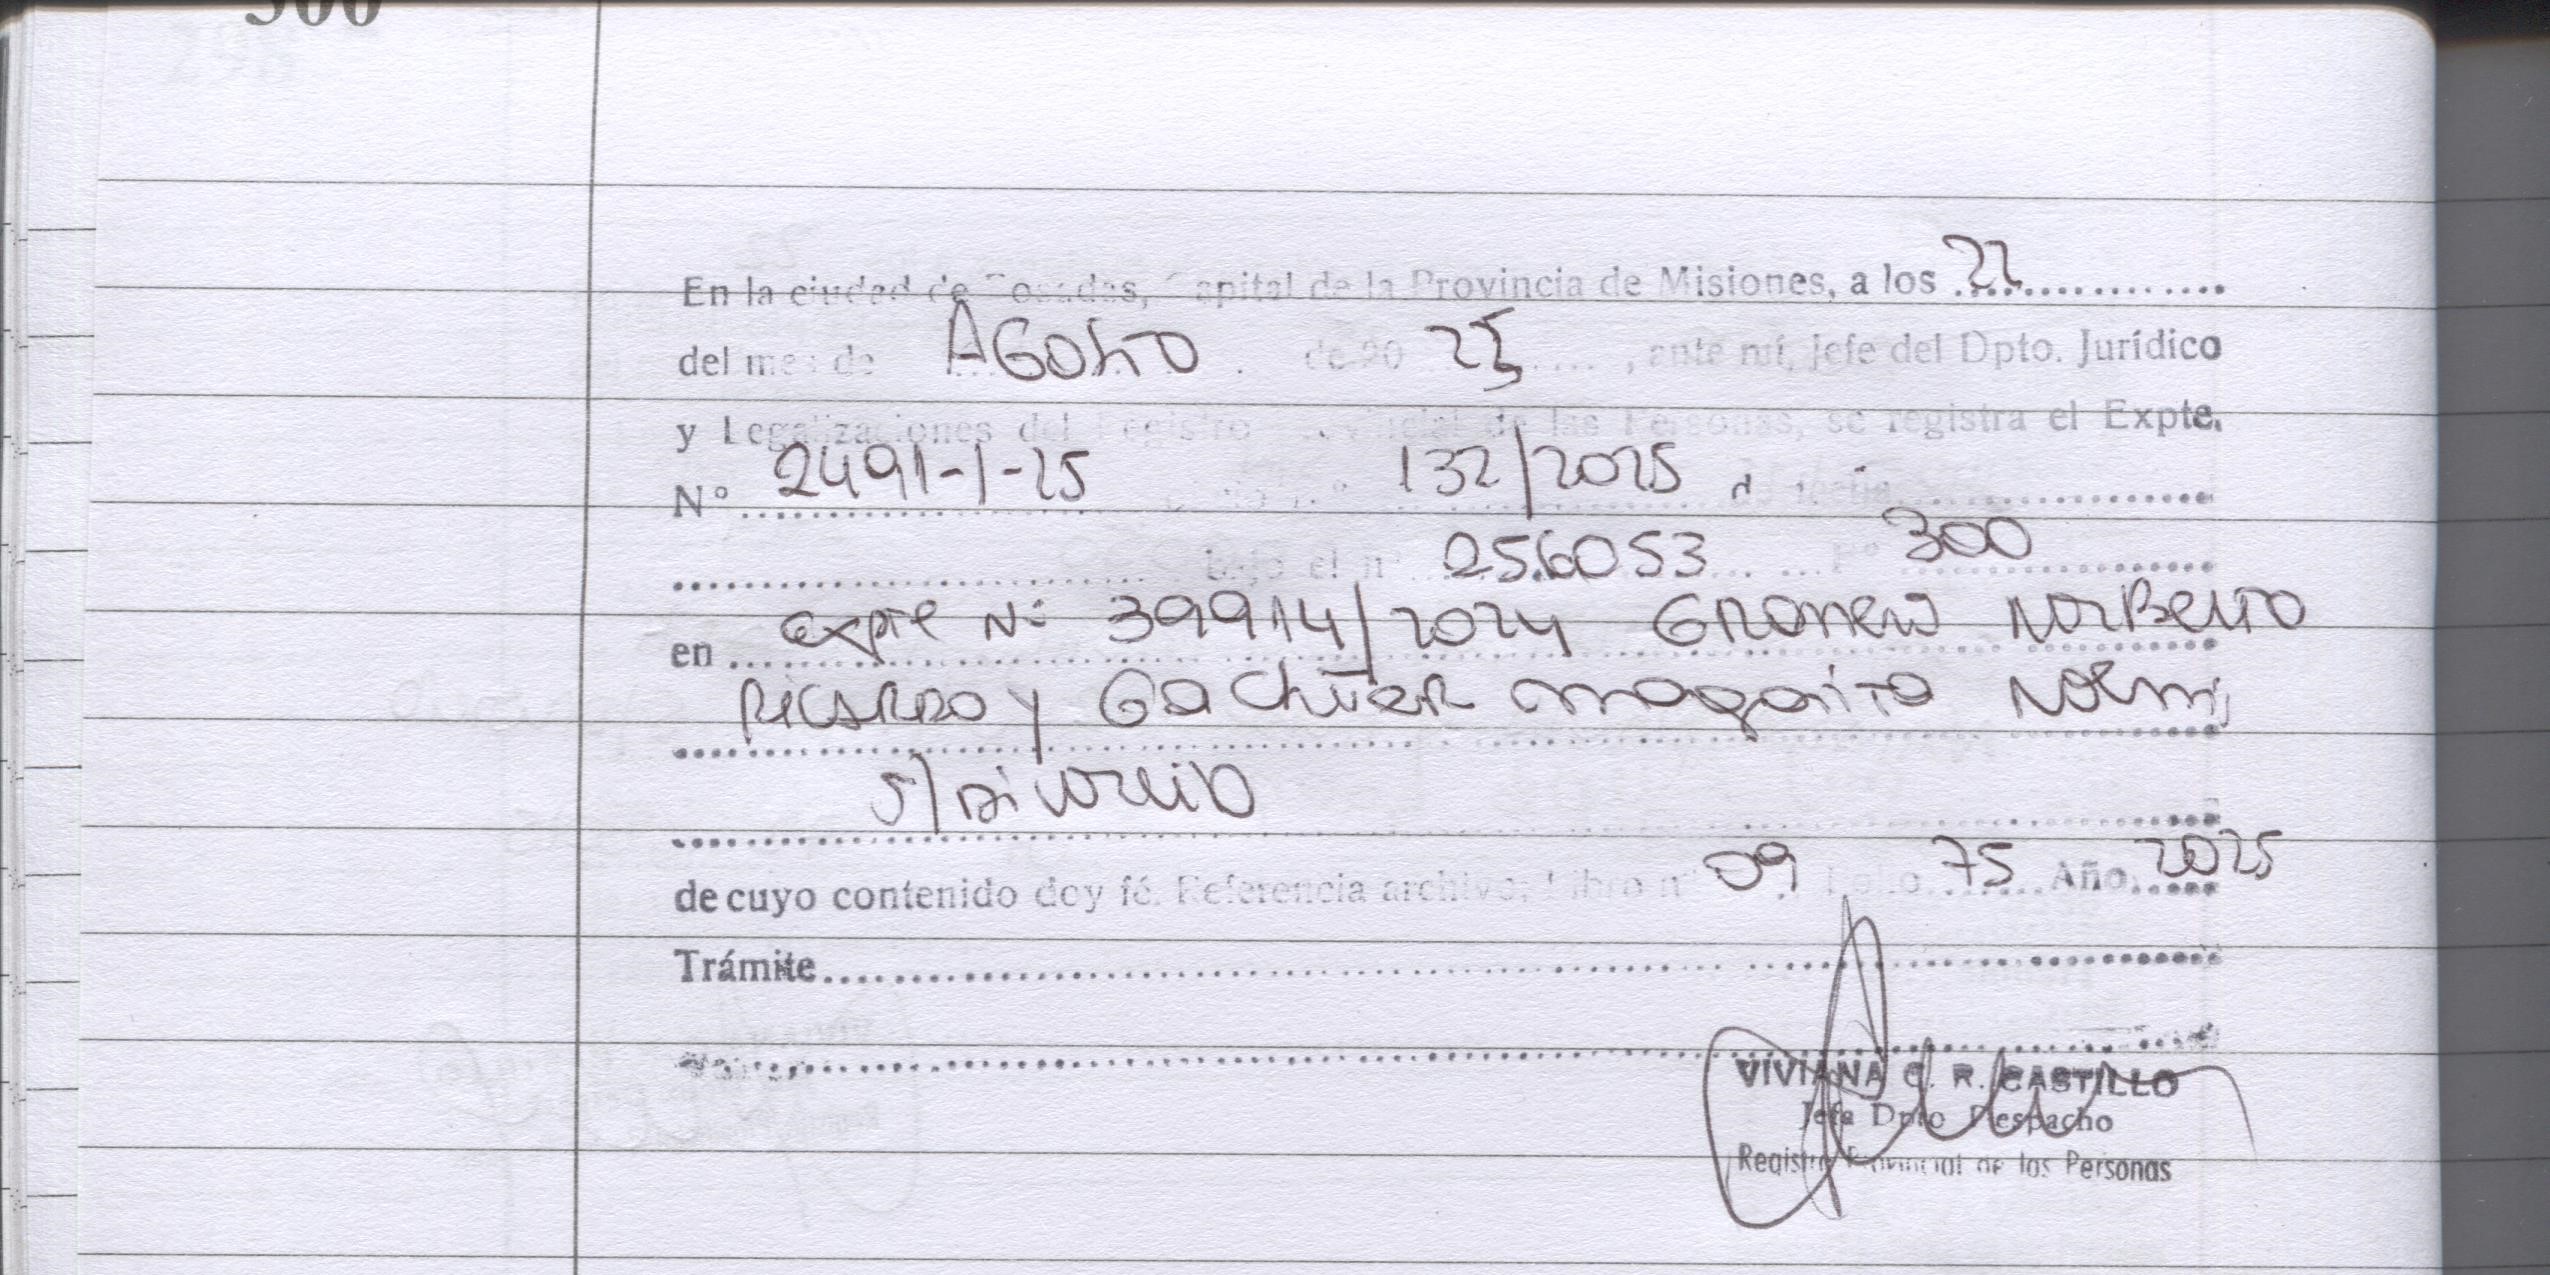 300
En la ciudad de Posadas, Capital de la Provincia de Misiones, a los 22
del mes de AGOSTO de 20 25, ante mí, jefe del Dpto. Jurídico
y Legalizaciones del Registro Provincial de las Personas, se registra el Expte.
N° 2491-1-25 132/2025
bajo el n° 256053 F° 300
en expte N° 39914/2024 GRONERO NORBERTO
RICARDO Y Gachüer margarita Noemi
S/DIVORCIO
de cuyo contenido doy fé. Referencia archivo: Libro n° 09 Folio 75 Año 2025
Trámite
VIVIANA C. R. CASTILLO
Jefa Dpto Despacho
Registro Provincial de las Personas